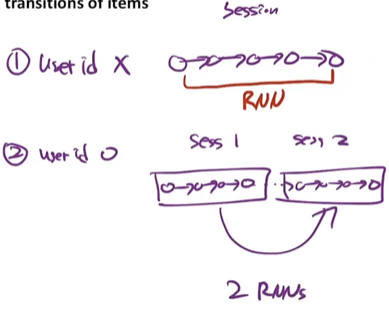 transitions of items
Session
① User id X
RNN
② user id O
Sess 1 Sess 2
2 RNNs